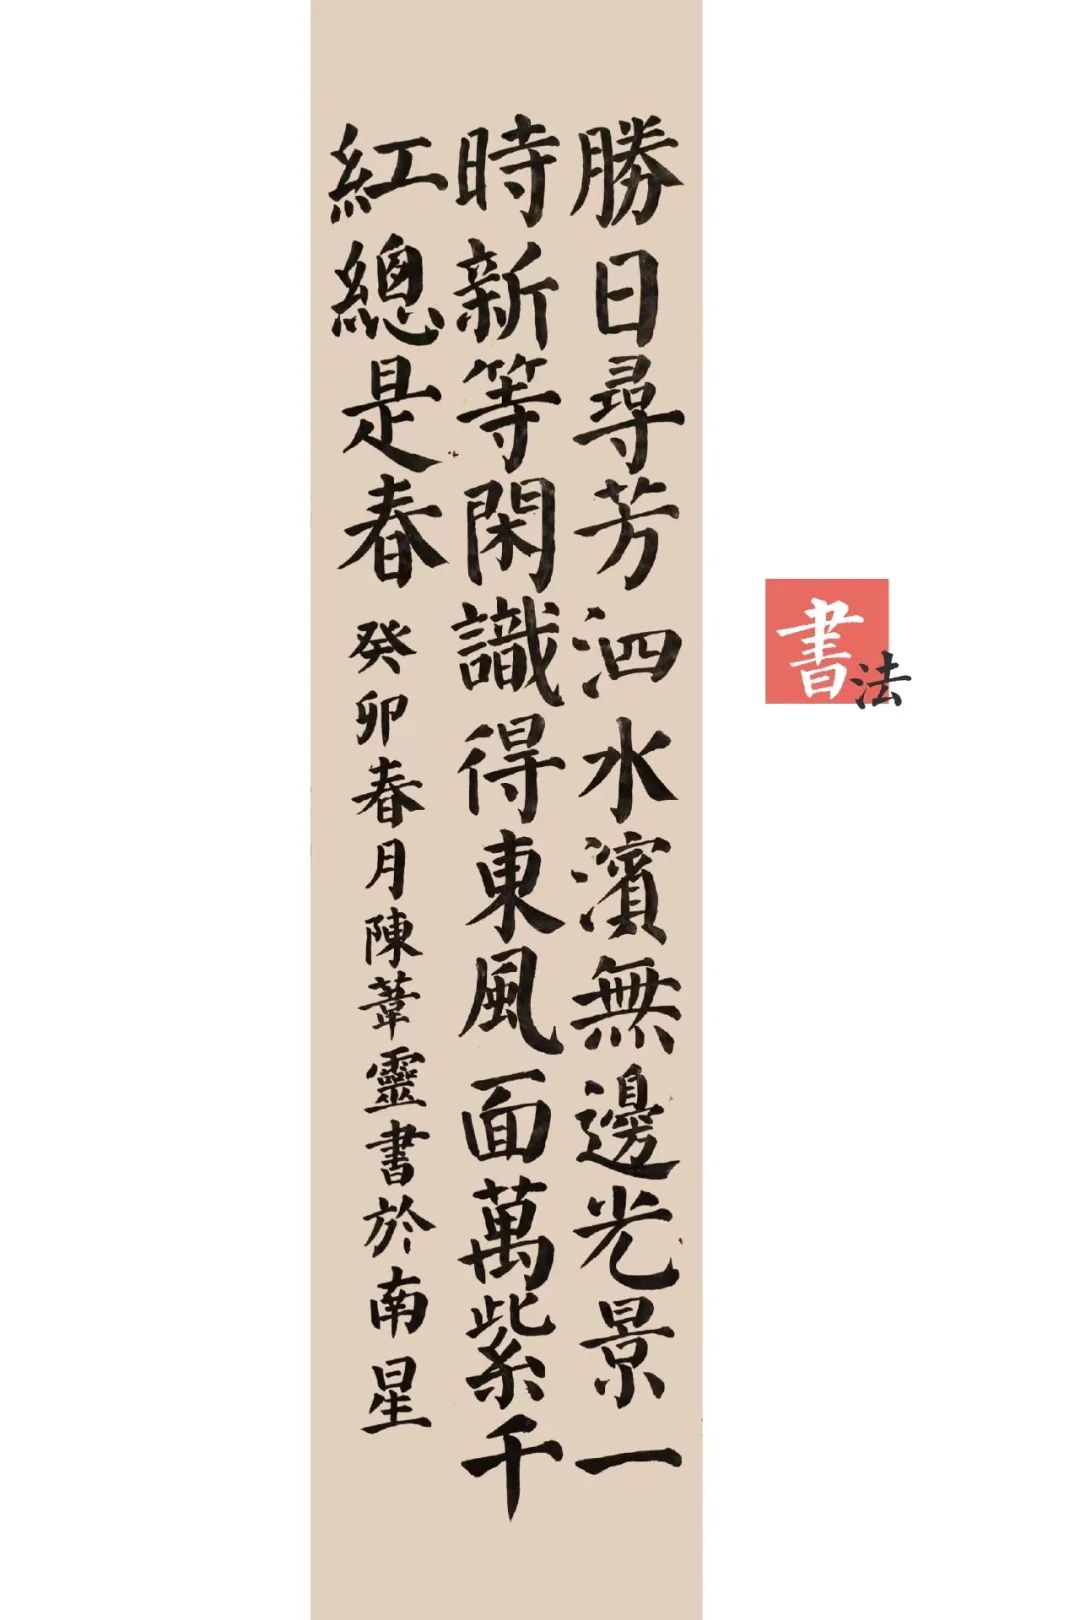 勝日尋芳泗水濱無邊光景一
時新等閑識得東風面萬紫千
紅總是春
癸卯春月陳葦靈書於南星
書法